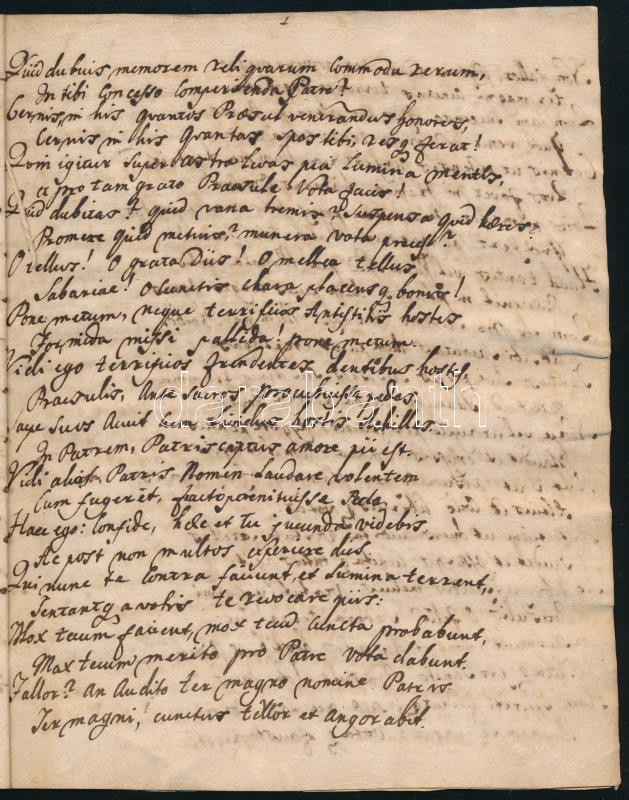 1
Quid dubiis memorem reliquarum commoda rerum,
In tibi Concesso Comperienda Patre?
Cernis, in his quantos Præsul venerandus honores,
Cernis in his Quantas spes tibi, resq ferat!
Quin igitur super astra levas pia lumina mentis,
et pro tam grato Praesule Vota facis!
Quid dubitas? quid vana tremis? suspensa quid hæres?
Promere quid metuis? munera vota preces?
O tellus! O grata Diis! O mellea tellus
Sabariae! O cunctis chara placensq bonis!
Pone metum, neque terrificos Antistitis hostes
Formida missi pallida! pone metum.
Vidi ego terrificos frendentes dentibus hostes,
Praesulis, Ante Sacros procubuisse pedes,
Saepe suos hostis Achilles
In Patrem, Patris captus amore pii est.
Vidi alios Patris Nomen laudare volentem
Cum fugeret, facto pœnituisse Pede.
Haec ego: Confide, hæc et Tu jucunda videbis,
Ac post non multos experiere dies.
Qui nunc te contra faciunt, et Lumina terrent,
Tentantq a votis te revocare piis:
Mox tecum facient, mox tecum Cuncta probabunt,
Max tecum merito pro Patre vota dabunt.
Fallor? An Audito ter magno nomine Patris
Ter magni! cunctus timor et angor abit.
darabanth